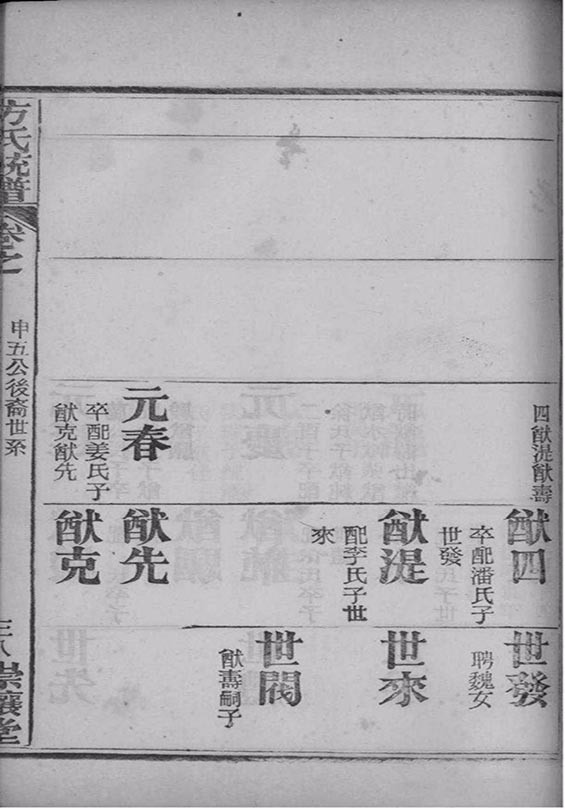 四猷湜猷壽
元春
卒配姜氏子
猷克猷先
猷四
卒配潘氏子
世發
猷湜
配李氏子世
來
猷先
猷克
世發
聘魏女
世來
世閥
猷壽嗣子
方氏統譜
卷之
申五公後裔世系